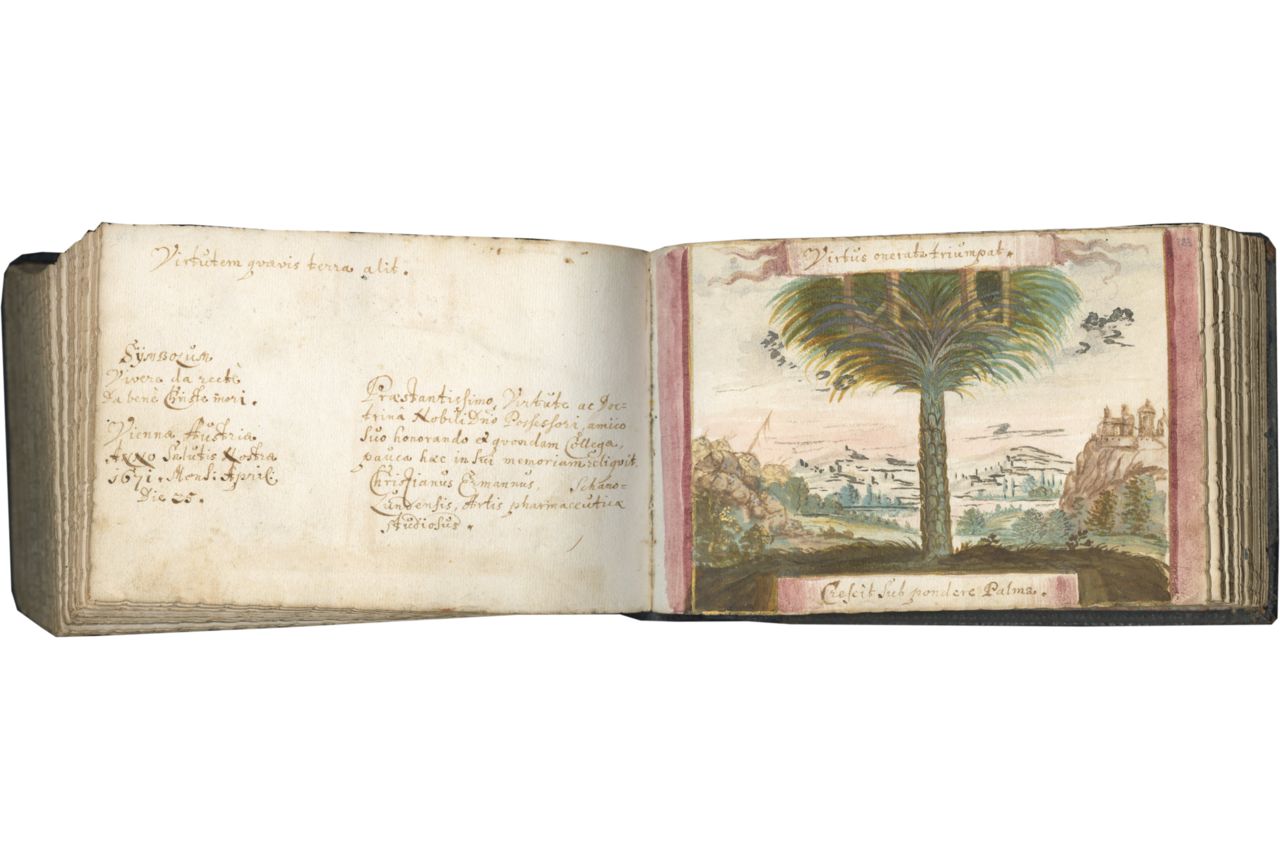 Virtutem quævis terra alit.
Symbolum
Vivere da recte
Da bene Christe mori.
Vienna Austriæ
Anno Salutis Nostræ
1671. Mens: April:
Die 25.
Præstantissimo, Virtute ac Doc-
trinâ Nobili Dno Possessori, amico
suo honorando et quondam Collegæ,
pauca hæc in sui memoriam reliquit
Christianus Ermannus,
Artis pharmaceuticæ
studiosus.
Virtus onerata triumpat.
Crescit sub pondere Palma.